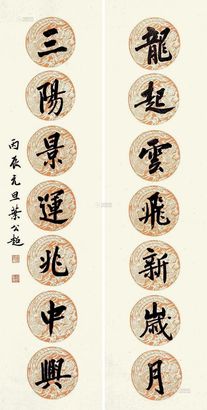 龍起雲飛新歲月
三陽景運兆中興
丙辰元旦葉公超